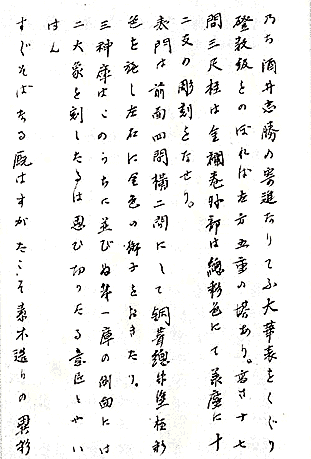 乃ち酒井忠勝の寄進たりてふ大華表をくぐり
磴数級をのぼれば左方五重の塔あり。高さ十七
間三尺柱は金襴巻外部は總彩色にて表層に十
二支の彫刻をなせり。
表門は前面四間横二間にして銅葺總朱塗極彩
色を施し左右に金色の獅子をおきたり。
三神庫はこのうちに並びぬ第一庫の側面には
二大象を刻したるは思ひ切りたる意匠とやい
はん
すぐそばなる厩はすがたこそ素木造りの異彩